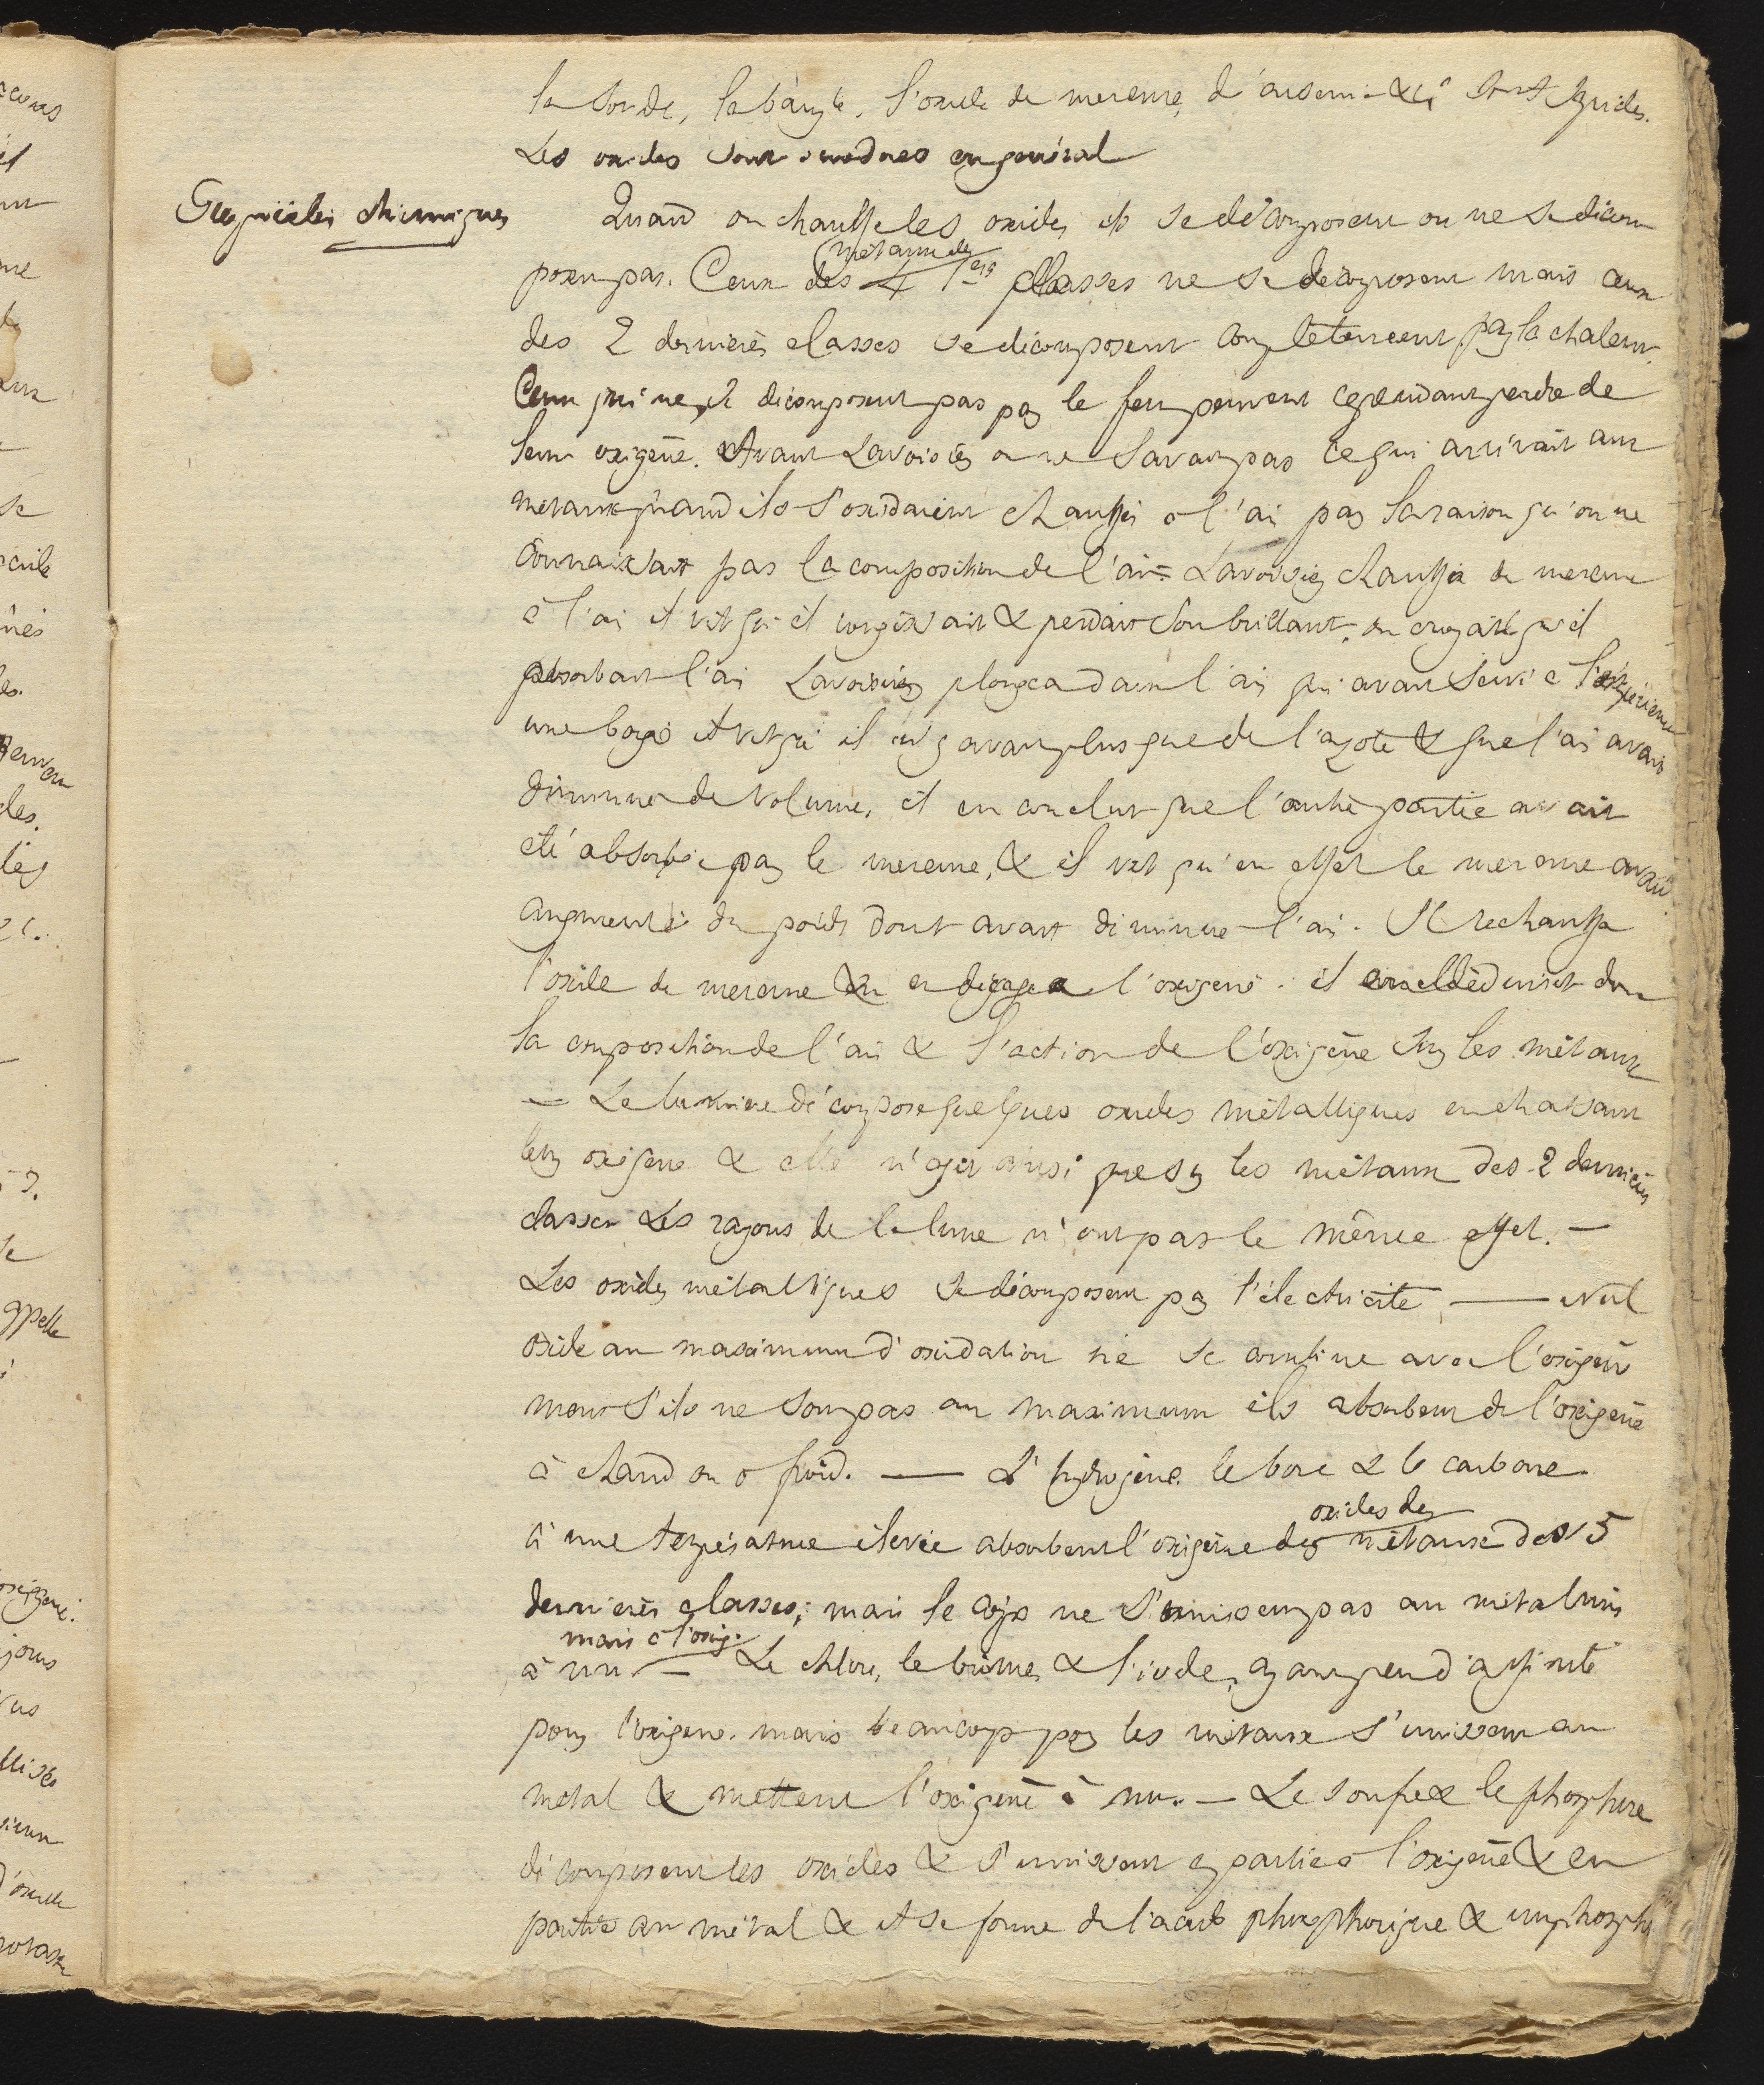 la soude, la baryte, l'oxide de mercure, d'arsenic &c sont acides.
Les oxides sont inodores en général
Propriétés chimiques
Quand on chauffe les oxides ils se décomposent ou ne se décom
posent pas. Ceux des métaux des 4 1ères classes ne se décomposent mais ceux
des 2 dernières classes se décomposent complètement par la chaleur.
Ceux qui ne se décomposent pas par le feu peuvent cependant perdre de
leur oxigène. Avant Lavoisier on ne savait pas ce qui arrivait aux
métaux quand ils s'oxidaient chauffés à l'air par la raison qu'on ne
connaissait pas la composition de l'air. Lavoisier chauffa du mercure
à l'air et vit qu'il rougissait & perdait son brillant, on croyait qu'il
absorbait l'air Lavoisier plongea dans l'air qui avait servi à l'expérience
une bougie et vit qu'il n'y avait plus que de l'azote & que l'air avait
diminué de volume, il en conclut que l'autre partie avait
été absorbée par le mercure, & il vit qu'en effet le mercure avait
augmenté du poids dont avait diminué l'air. Il rechauffa
l'oxide de mercure & en dégagea l'oxigène. il en déduisit donc
la composition de l'air & l'action de l'oxigène sur les métaux
— La lumière décompose quelques oxides métalliques en chassant
leur oxigène & elle n'agit ainsi que sur les métaux des 2 dernières
classes Les rayons de la lune n'ont pas le même effet. —
Les oxides métalliques se décomposent par l'électricité — Nul
oxide au maximum d'oxidation ne se combine avec l'oxigène
mais s'ils ne sont pas au maximum ils absorbent de l'oxigène
à chaud ou à froid. — L'hydrogène, le bore & le carbone
à une température élevée absorbent l'oxigène des oxides des métaux des 5
dernières classes, mais le corps ne s'unissent pas au métal mis
à nu mais à l'oxig. — Le chlore, le brôme, & l'iode, ayant peu d'affinité
pour l'oxigène, mais beaucoup pour les métaux s'unissent au
métal & mettent l'oxigène à nu. — Le soufre & le phosphore
décomposent les oxides & s'unissent en partie à l'oxigène & en
partie au métal & il se forme de l'acide phosphorique & un phosph